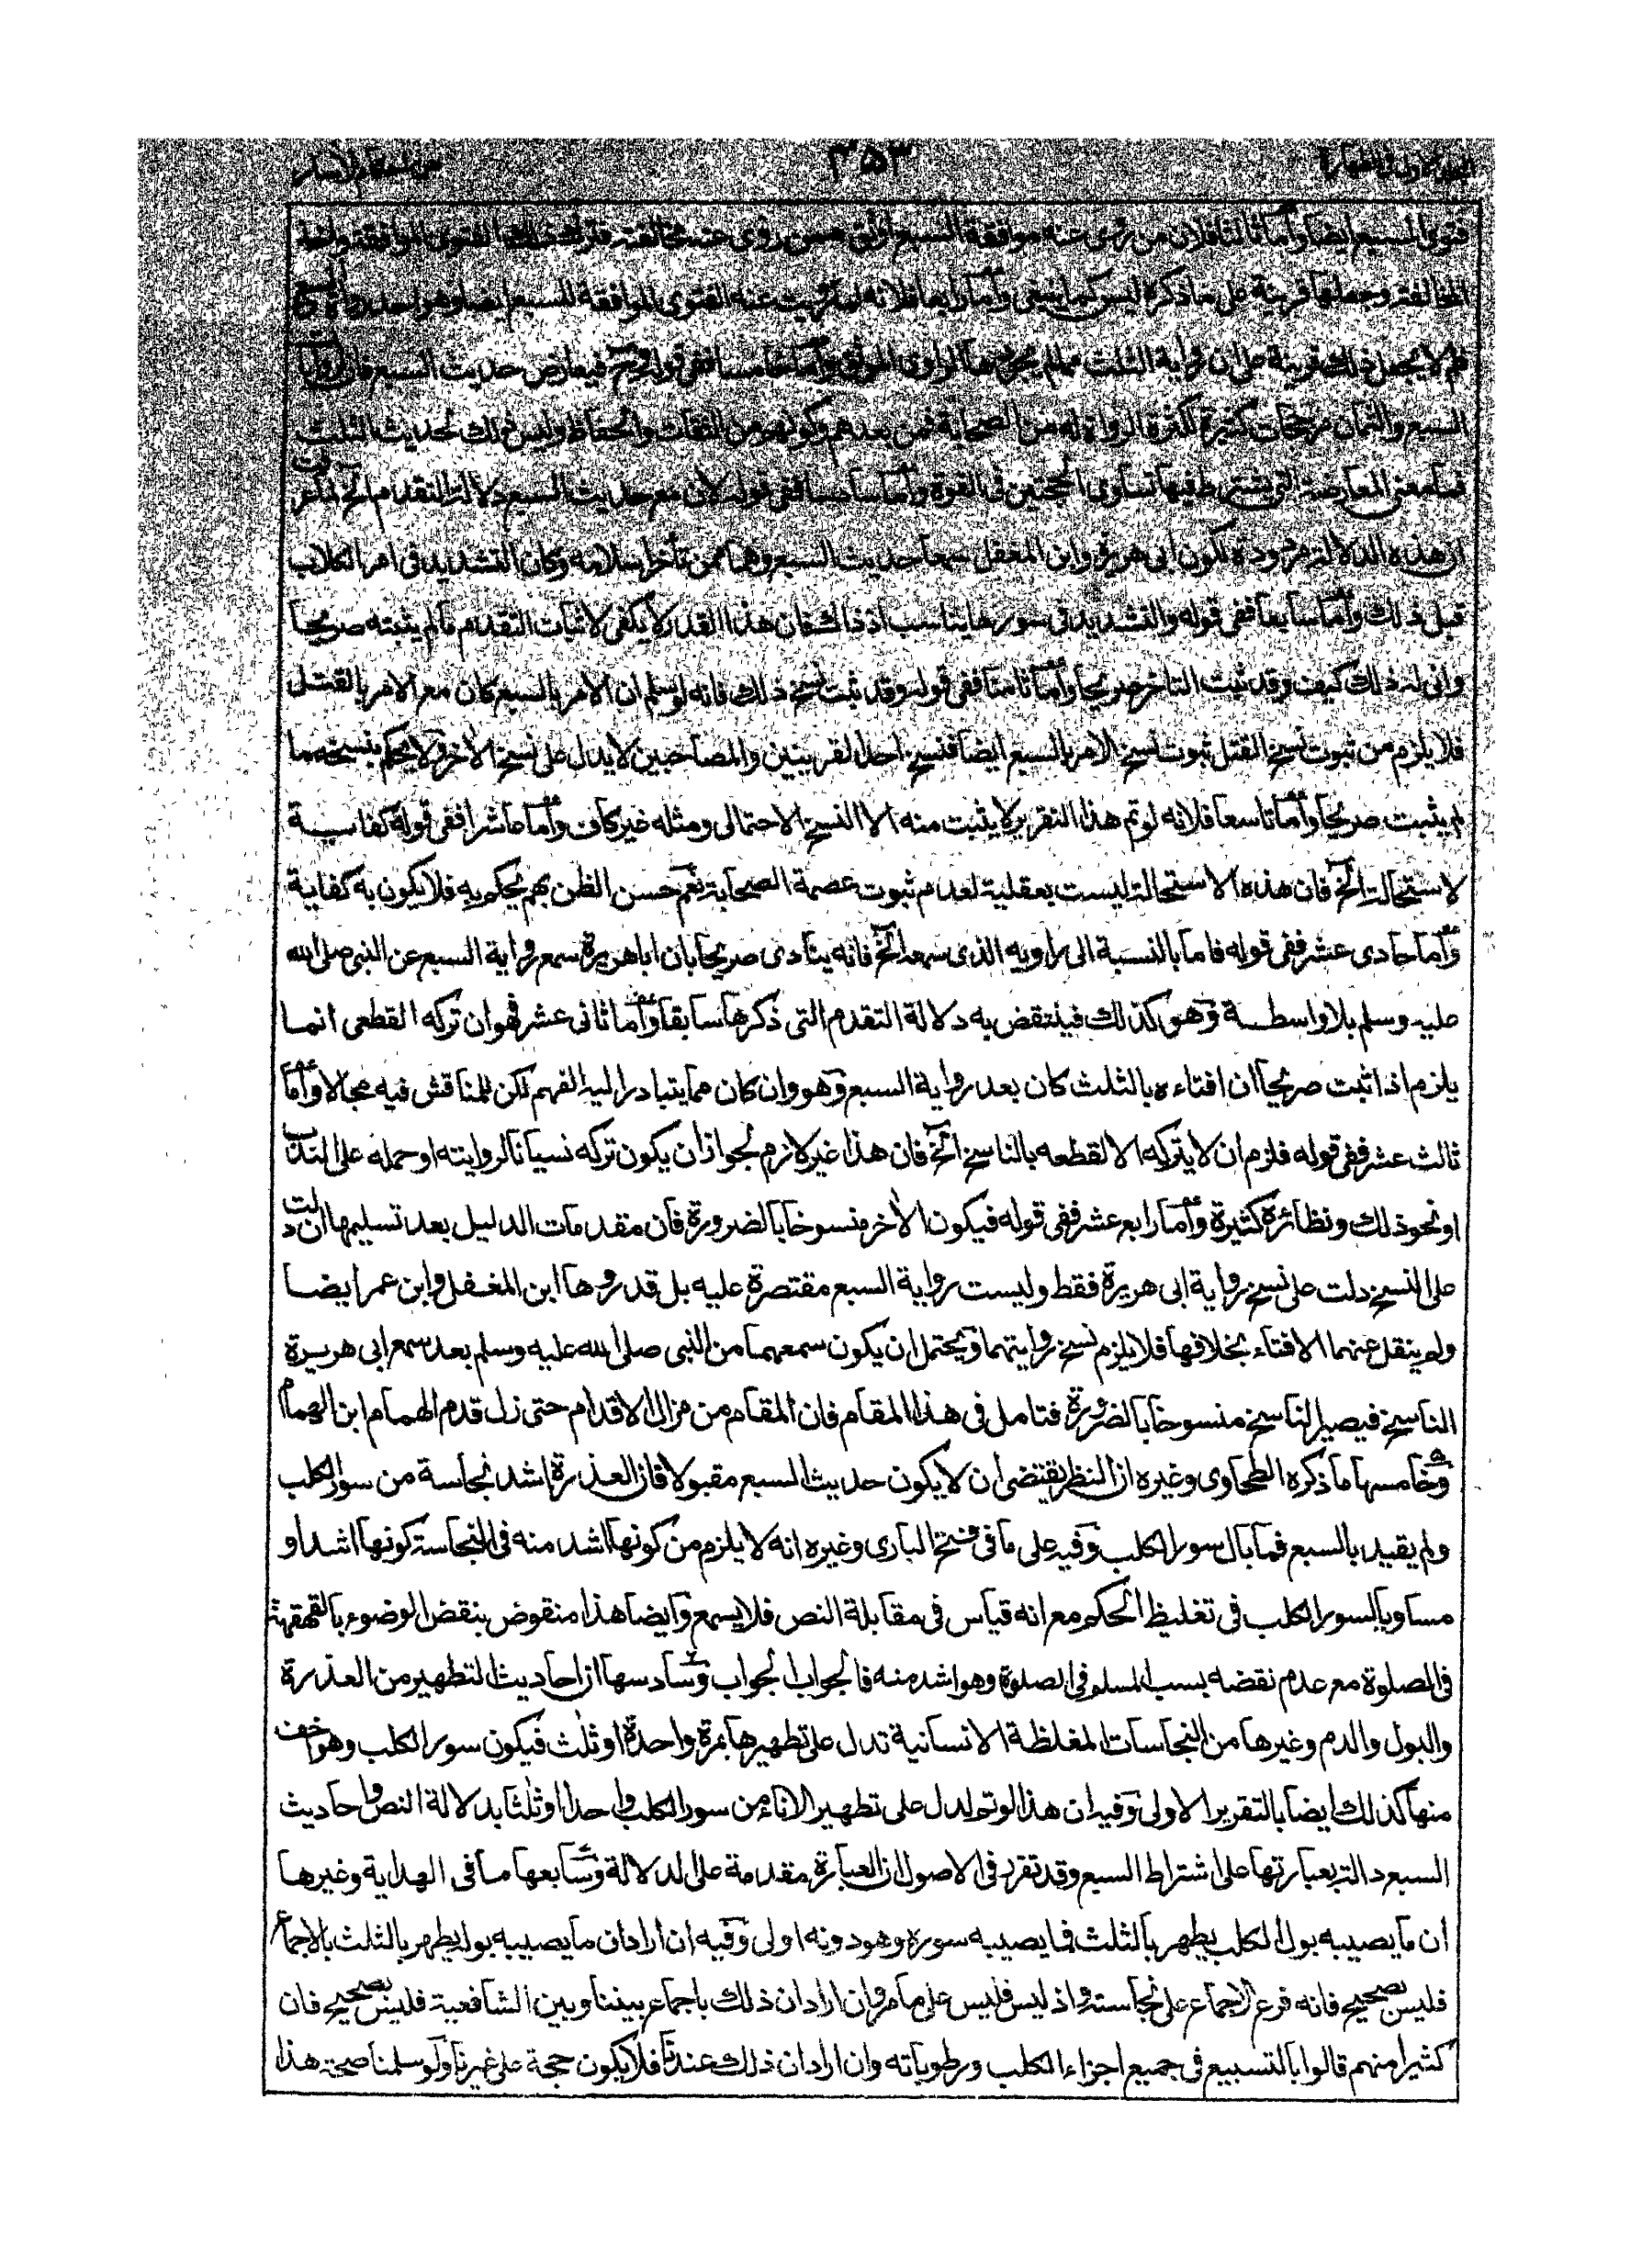 ٤٥٣
فتوى السبع ايضا واما ثالثا فلان من روى عنه موافقة السبع اوثق ممن روى عنه مخالفته فترك تلك الفتوى الموافقة واخذ
المخالفة وجعلها قرينة على ما ذكره ليس كما ينبغى واما رابعا فلانه لما ثبت عنه الفتوى الموافقة للسبع ايضا وهو احد رواة السبع
فلم لا يجعل ذلك قرينة على ان رواية الثلث مما لم يخرجها الراوى الموثق واما خامسا ففى قوله الخ فيعارض حديث السبع فان لروايات
السبع والثمان مرجحات كثيرة لكثرة الرواة له من الصحابة فمن بعدهم وكونهم من الثقات والحفاظ وليس ذلك لحديث الثلث
فما معنى المعارضة التى يشترط فيها تساوى الحجتين فى القوة واما سادسا ففى قوله لان مع حديث السبع دلالة التقدم الخ لما عرفت
ان هذه الدلالة مردودة لكون ابى هريرة وابن المغفل سمعا حديث السبع وهما ممن تأخر اسلامه وكان التشديد فى امر الكلاب
قبل ذلك واما سابعا ففى قوله والتشديد فى سورها يناسب اذ ذاك فان هذا القدر لا يكفى لاثبات التقدم ما لم يثبته صريحا
وانى له ذلك كيف وقد ثبت التاخر صريحا واما ثامنا ففى قوله وقد ثبت نسخ ذلك فانه لو سلم ان الامر بالسبع كان مع الامر بالقتل
فلا يلزم من ثبوت نسخ القتل ثبوت نسخ الامر بالسبع ايضا فنسخ احد القرينين والمصاحبين لا يدل على نسخ الاخر ولا يحكم بنسخه ما
لم يثبت صريحا واما تاسعا فلانه لو تم هذا التقرير لا يثبت منه الا النسخ الاحتمالى ومثله غير كاف واما عاشرا ففى قوله كفاية
لاستحالة الخ فان هذه الاستحالة ليست بعقلية لعدم ثبوت عصمة الصحابة نعم حسن الظن بهم يحكم به فلا يكون به كفاية
واما حادى عشر ففى قوله فاما بالنسبة الى راويه الذى سمعه الخ فانه ينادى صريحا بان ابا هريرة سمع رواية السبع عن النبى صلى الله
عليه وسلم بلا واسطة وهو كذلك فينتقض به دلالة التقدم التى ذكرها سابقا واما ثانى عشر فهو ان تركه القطعى انما
يلزم اذا ثبت صريحا ان افتاءه بالثلث كان بعد رواية السبع وهو وان كان مما يتبادر اليه الفهم لكن للمناقش فيه مجالا واما
ثالث عشر ففى قوله فلزم ان لا يتركه الا لقطعه بالناسخ الخ فان هذا غير لازم لجواز ان يكون تركه نسيانا لروايته او حمله على الندب
او نحو ذلك ونظائره كثيرة واما رابع عشر ففى قوله فيكون الاخر منسوخا بالضرورة فان مقدمات الدليل بعد تسليمها ان دلت
على النسخ دلت على نسخ رواية ابى هريرة فقط وليست رواية السبع مقتصرة عليه بل قد روها ابن المغفل وابن عمر ايضا
ولم ينقل عنهما الافتاء بخلافها فلا يلزم نسخ روايتهما ويحتمل ان يكون سمعهما من النبى صلى الله عليه وسلم بعد سمع ابى هريرة
الناسخ فيصير الناسخ منسوخا بالضرورة فتامل فى هذا المقام فان المقام من مزال الاقدام حتى زل قدم الهمام ابن الهمام
وخامسها ما ذكره الطحاوى وغيره ان النظر يقتضى ان لا يكون حديث السبع مقبولا فان العذرة اشد نجاسة من سور الكلب
ولم يقيد بالسبع فما بال سور الكلب وفيه على ما فى فتح البارى وغيره انه لا يلزم من كونها اشد منه فى النجاسة كونها اشد او
مساويا لسور الكلب فى تغليظ الحكم مع انه قياس فى مقابلة النص فلا يسمع وايضا هذا منقوض بنقض الوضوء بالقهقهة
فى الصلوة مع عدم نقضه بسب المسلم فى الصلوة وهو اشد منه فالجواب الجواب وسادسها ان احاديث التطهير من العذرة
والبول والدم وغيرها من النجاسات المغلظة الانسانية تدل على تطهيرها بمرة واحدة او ثلث فيكون سور الكلب وهو اخف
منها كذلك ايضا بالتقرير الاولى وفيه ان هذا لو تم لدل على تطهير الاناء من سور الكلب واحدا او ثلثا بدلالة النص واحاديث
السبع دالة بعبارتها على اشتراط السبع وقد تقرر فى الاصول ان العبارة مقدمة على الدلالة وسابعها ما فى الهداية وغيرها
ان ما يصيبه بول الكلب يطهر بالثلث فما يصيبه سوره وهو دونه اولى وفيه ان اراد ان ما يصيبه بوله يطهر بالثلث بالاجماع
فليس بصحيح فانه فرع الاجماع على نجاسته واذ ليس فليس على ما مر وان اراد ان ذلك باجماع بيننا وبين الشافعية فليس بصحيح فان
كثيرا منهم قالوا بالتسبيع فى جميع اجزاء الكلب ورطوباته وان اراد ان ذلك عندنا فلا يكون حجة على غيرنا ولو سلمنا صحة هذا